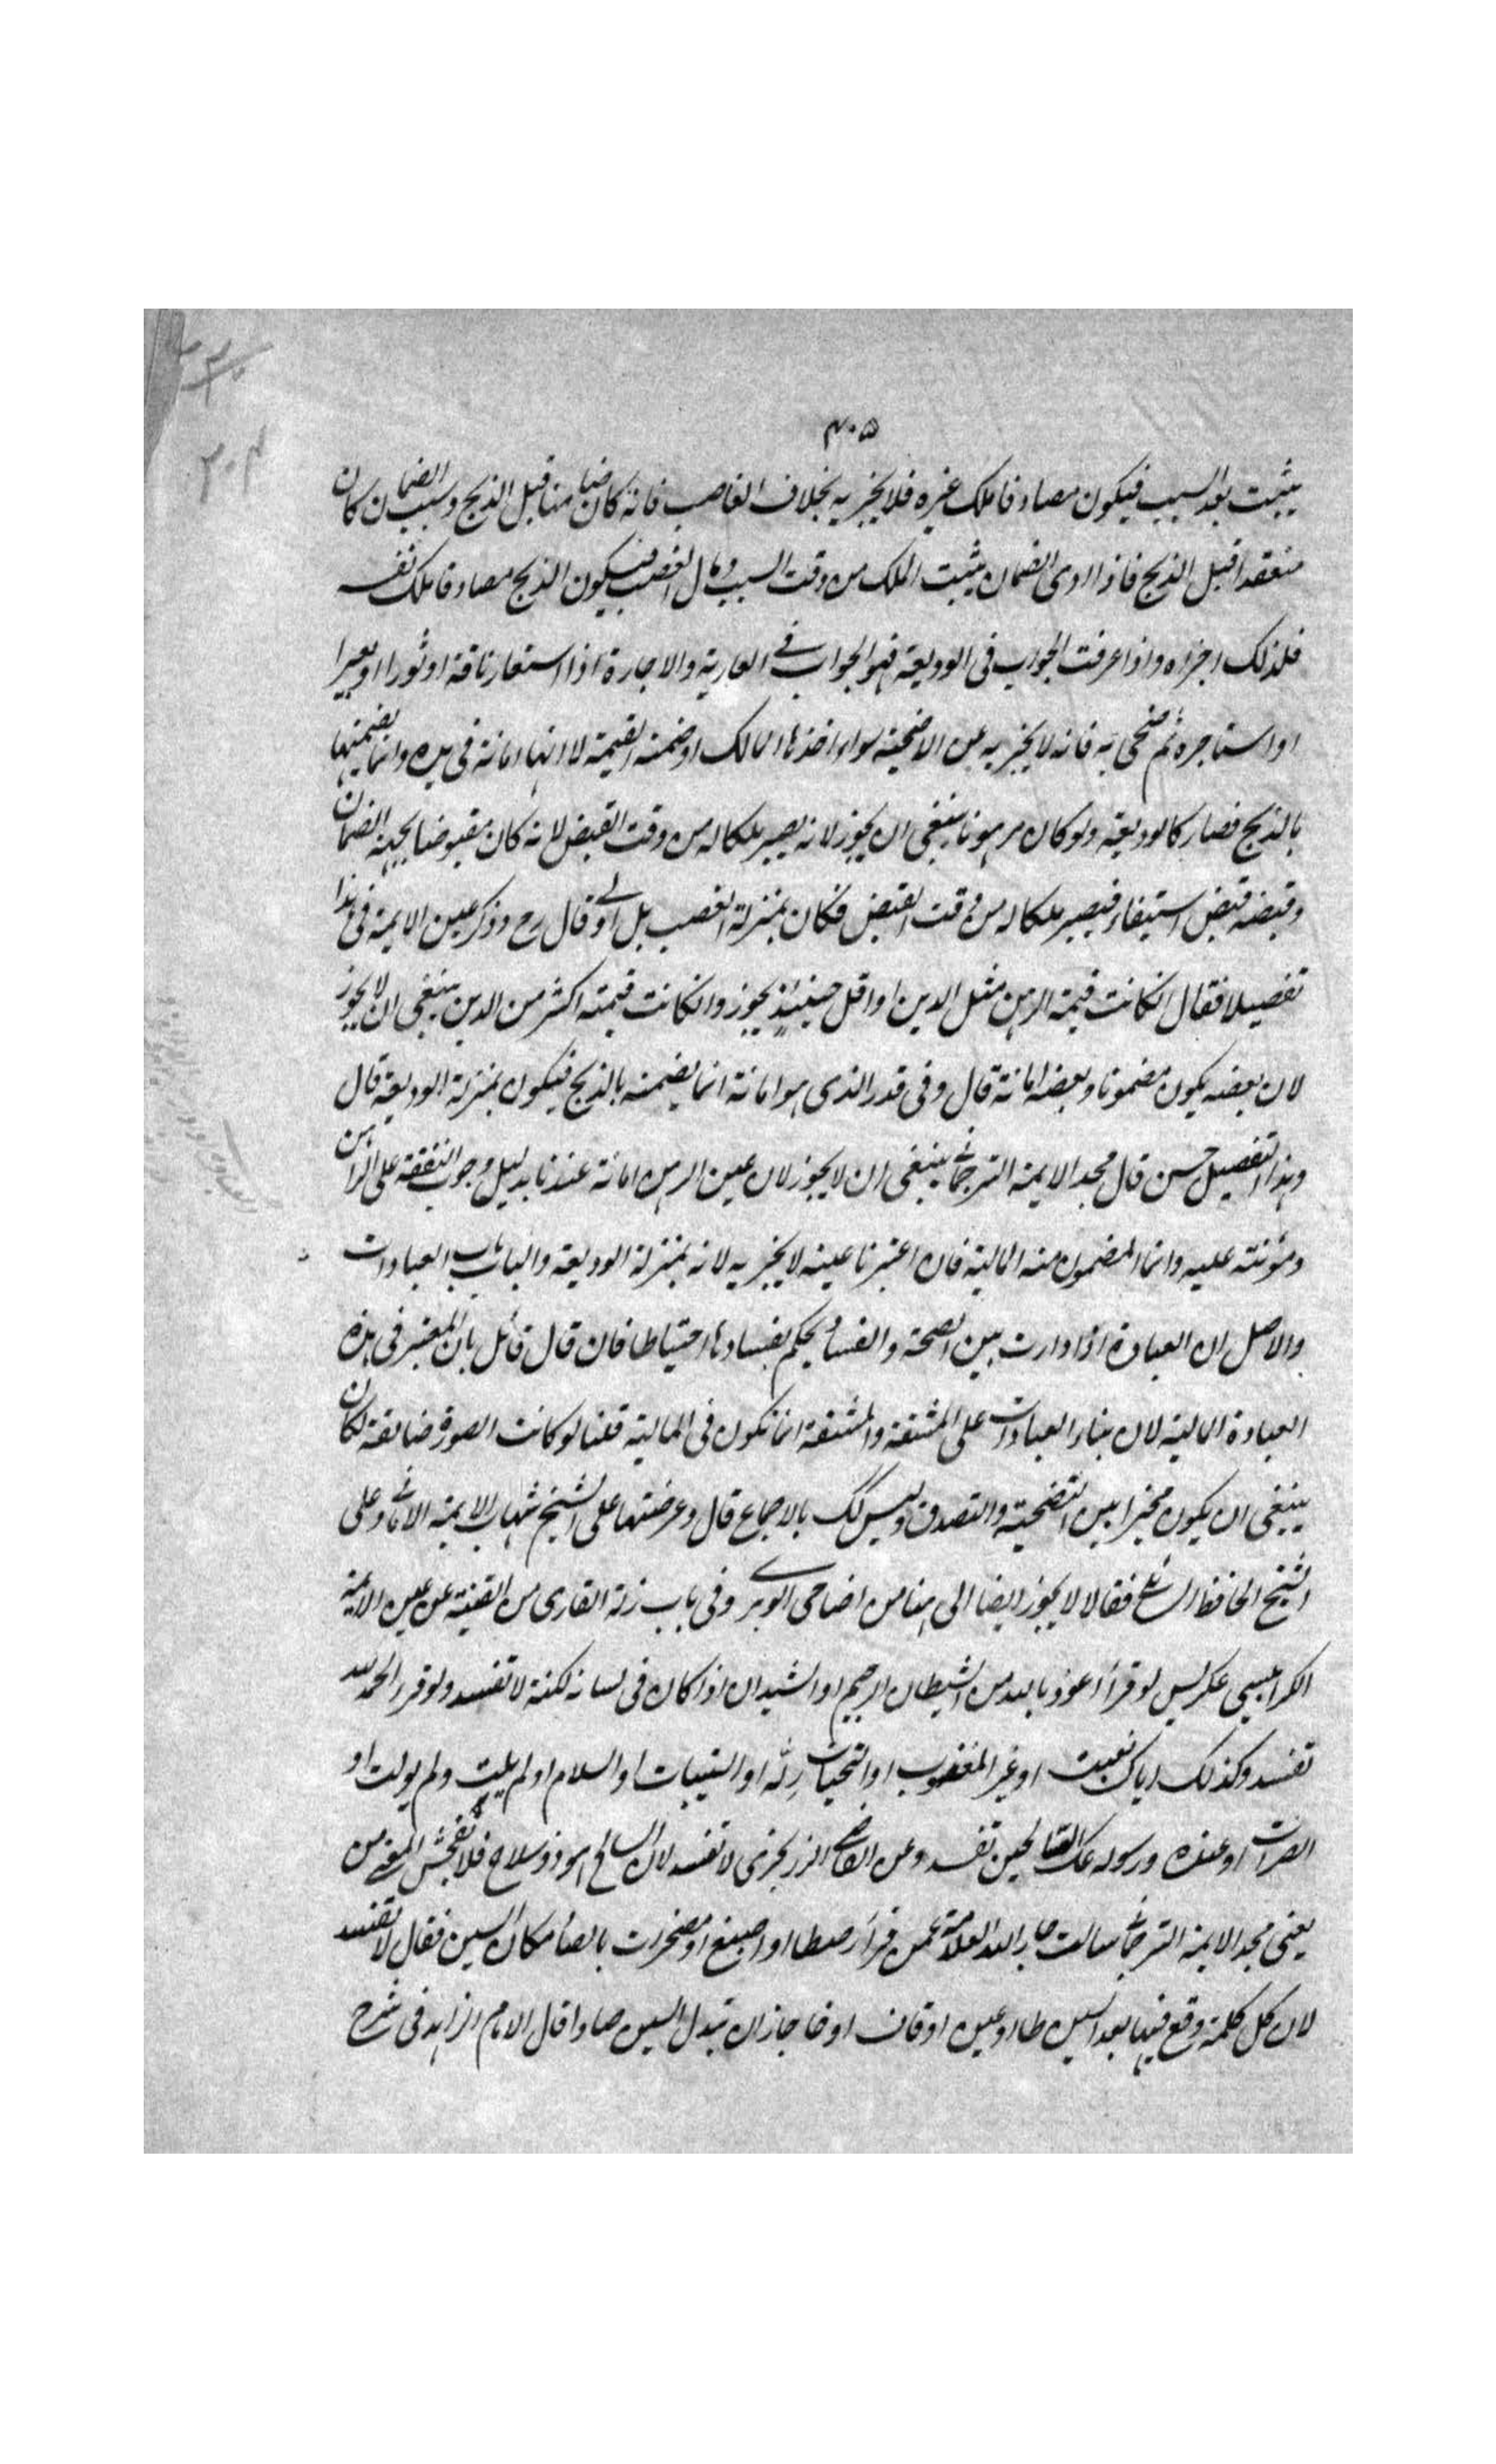 ٤٠٥
٢٠٤
يثبت بعد السبب فيكون مصادفا ملك غيره فلا يجزيه بخلاف الغاصب فانه كان ضامنا قبل الذبح وسبب الضمان كان
منعقدا قبل الذبح فاذا ادى الضمان يثبت الملك من وقت السبب وهو الغصب فيكون الذبح مصادفا ملك نفسه
فلذلك اجزاه واذا عرفت الجواب فى الوديعة فهو الجواب فى العارية والاجارة اذا استعار ناقة او ثورا او بعيرا
او استاجره ثم ضحى به فانه لا يجزيه عن الاضحية سواء اخذها المالك او ضمنه القيمة لانها امانة فى يده وانما يضمنها
بالذبح فصار كالوديعة ولو كان مرهونا ينبغى ان يجوز لانه يصير ملكا له من وقت القبض لانه كان مقبوضا بجهة الضمان
وقبضه قبض استيفاء فيصير ملكا له من وقت القبض فكان بمنزلة الغصب بل اولى وقال رح وذكر عين الايمة فى هذا
تفصيلا فقال انكانت قيمة الرهن مثل الدين او اقل حينئذ يجوز وانكانت قيمته اكثر من الدين ينبغى ان لا يجوز
لان بعضه يكون مضمونا وبعضه امانة قال وفى قدر الذى هو امانة انما يضمنه بالذبح فيكون بمنزلة الوديعة قال
وهذا التفصيل حسن قال مجد الايمة الترجمانى ينبغى ان لا يجوز لان عين الرهن امانة عندنا بدليل وجوب النفقة على الراهن
ومؤنته عليه وانما المضمون منه المالية فان اعتبرنا عينه لا يجزيه لانه بمنزلة الوديعة والباب باب العبادات
والاصل ان العبادة اذا دارت بين الصحة والفساد يحكم بفسادها احتياطا فان قال قائل بان المعتبر فى هذه
العبادة المالية لان بناء العبادات على المشقة والمشقة انما تكون فى المالية قلنا لو كانت الصورة ضايعة لكان
ينبغى ان يكون مخيرا بين التضحية والتصدق وليس كك بالاجماع قال وعرضتها على الشيخ شهاب الايمة الامامى وعلى
الشيخ الحافظ فقالا لا يجوز ايضا الى هنا من اضاحى الوبرى وفى باب زلة القارى من القنية عن عين الايمة
الكرابيسى عكرلس لو قرأ اعوذ بالله من الشيطان الرجيم او الشيدان اذا كان فى لسانه لكنة لا تفسد ولو قرء الحمد لله
تفسد وكذلك اياك نعبت او غير المغضوب او التحيات رلله او التيبات او السلام او لم يلت ولم يولت او
الصرات او عنده ورسوله عك الصالحين تفسد وعن القاضى الزرنجرى لا تفسد لان السالح هو ذو سلاح فلا تفحش المعنى من
يعنى مجد الايمة الترجمانى سالت جار الله العلامة عمن قرأ رصطا او اصبغ او مصخرات بالصاد مكان السين فقال لا تفسد
لان كل كلمة وقع فيها بعد السين طاء وعين او قاف او خا جاز ان تبدل السين صادا قال الامام الزاهد فى شرح